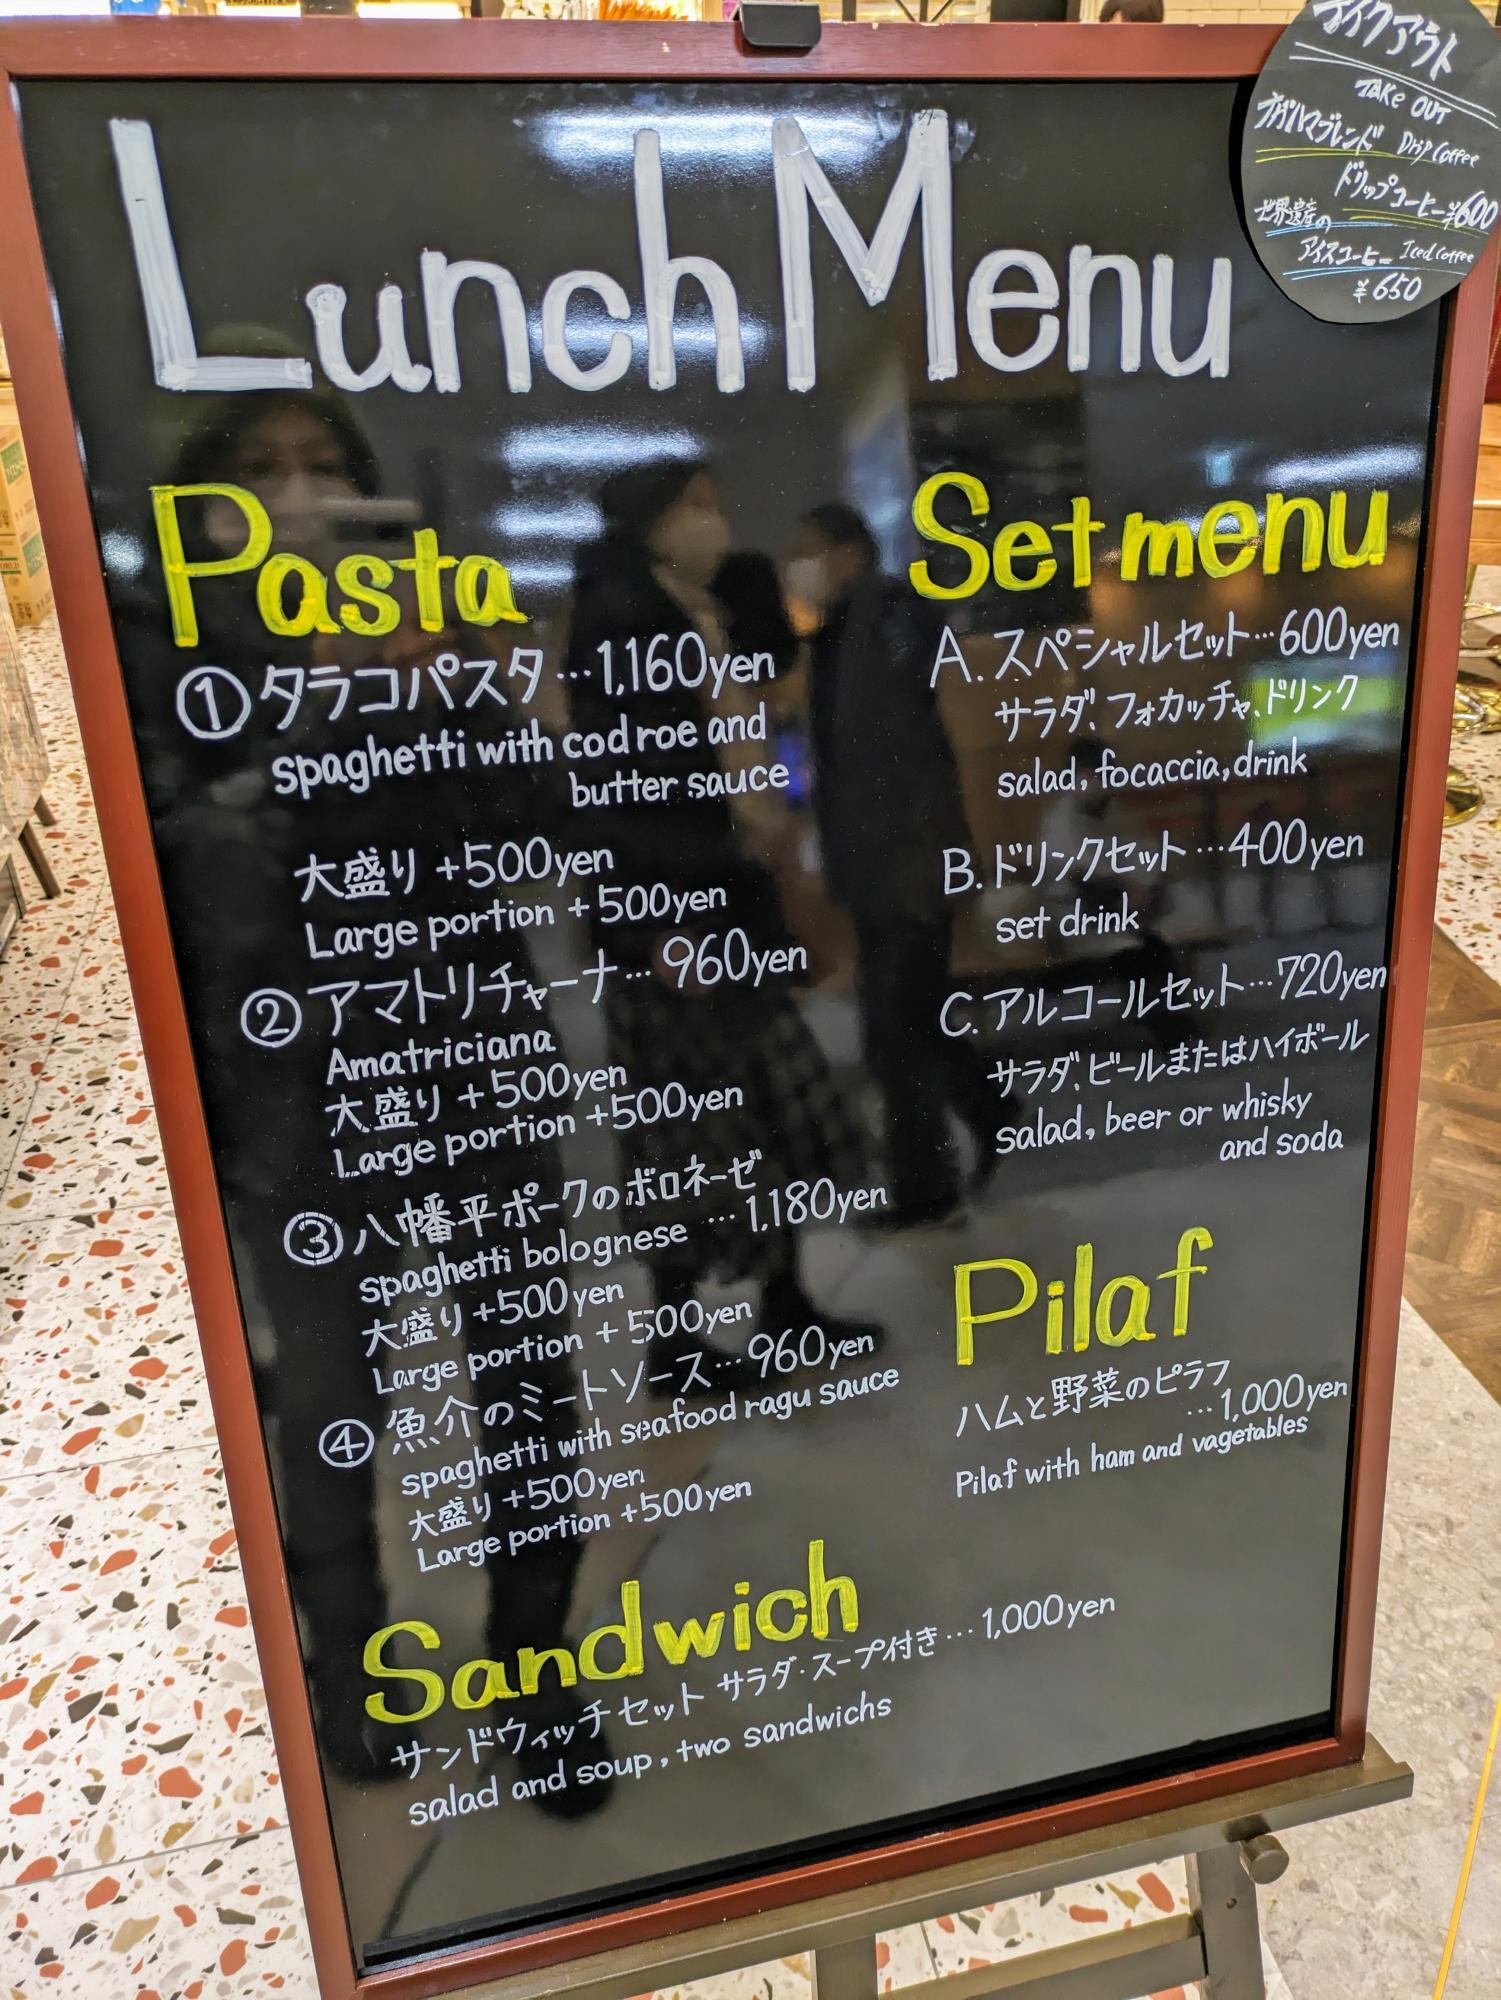 Lunch Menu
テイクアウト
TAKE OUT
ナガハマブレンド Drip Coffee
ドリップコーヒー ¥600
世界遺産の
アイスコーヒー Iced Coffee
¥650
Pasta
①タラコパスタ…1,160yen
spaghetti with cod roe and
butter sauce
大盛り +500yen
Large portion +500yen
②アマトリチャーナ…960yen
Amatriciana
大盛り +500yen
Large portion +500yen
③八幡平ポークのボロネーゼ
spaghetti bolognese …1,180yen
大盛り +500yen
Large portion +500yen
④魚介のミートソース…960yen
spaghetti with seafood ragu sauce
大盛り +500yen
Large portion +500yen
Set menu
A.スペシャルセット…600yen
サラダ、フォカッチャ、ドリンク
salad, focaccia, drink
B.ドリンクセット…400yen
set drink
C.アルコールセット…720yen
サラダ、ビールまたはハイボール
salad, beer or whisky
and soda
Pilaf
ハムと野菜のピラフ
…1,000yen
Pilaf with ham and vagetables
Sandwich
サンドウィッチセット サラダ・スープ付き…1,000yen
salad and soup, two sandwichs